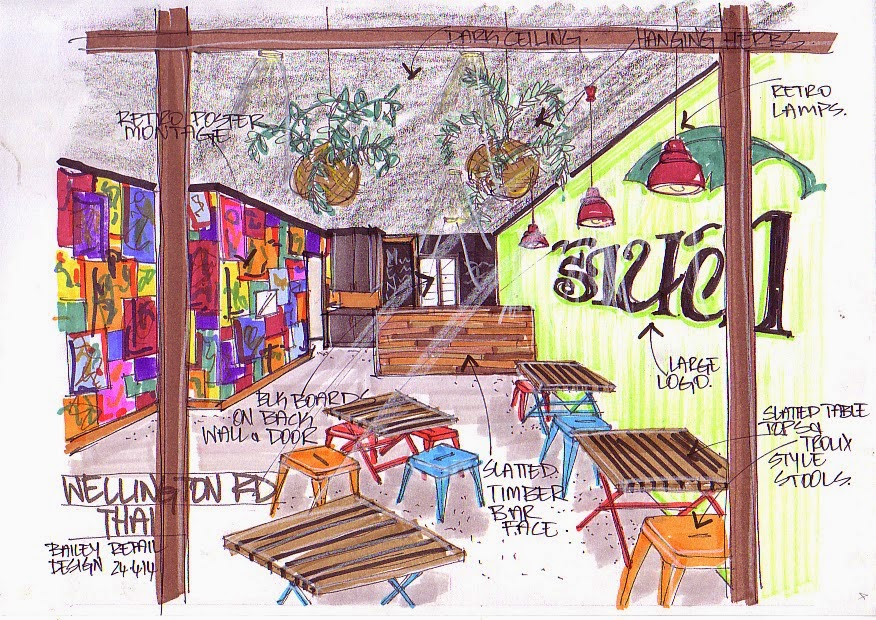 DARK CEILING.
HANGING HERBS
RETRO
LAMPS.
RETRO POSTER
MONTAGE
LARGE
LOGO.
BLK BOARDS
ON BACK
WALL & DOOR
SLATTED TABLE
TOPS &
TROLIX
STYLE
STOOLS.
SLATTED
TIMBER
BAR
FACE
WELLINGTON RD
THAI
BAILEY RETAIL
DESIGN 24.4.14